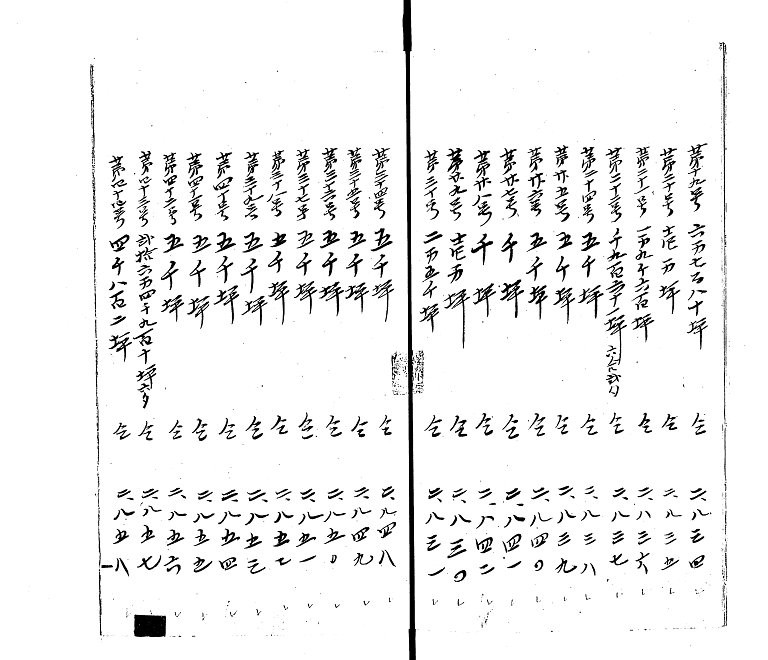 第十九号 六万七百八十坪 仝 二、八三四
第二十号 壱万坪 仝 二、八三五
第二十一号 一万九千六百坪 仝 二、八三六
第二十三号 千九百六十一坪 六合弐夕 仝 二、八三七
第二十四号 五千坪 仝 二、八三八
第廿五号 五千坪 仝 二、八三九
第廿六号 五千坪 仝 二、八四〇
第廿七号 千坪 仝 二、八四一
第廿八号 千坪 仝 二、八四二
第廿九号 壱万坪 仝 二、八三〇
第三十号 二万五千坪 仝 二、八三一
第三十四号 五千坪 仝 二、八四八
第三十五号 五千坪 仝 二、八四九
第三十六号 五千坪 仝 二、八五〇
第三十七号 五千坪 仝 二、八五一
第三十八号 五千坪 仝 二、八五二
第三十九号 五千坪 仝 二、八五三
第四十号 五千坪 仝 二、八五四
第四十一号 五千坪 仝 二、八五五
第四十二号 五千坪 仝 二、八五六
第四十三号 弐拾六万四千九百十坪 六夕 仝 二、八五七
第四十四号 四千八百二坪 仝 二、八五八